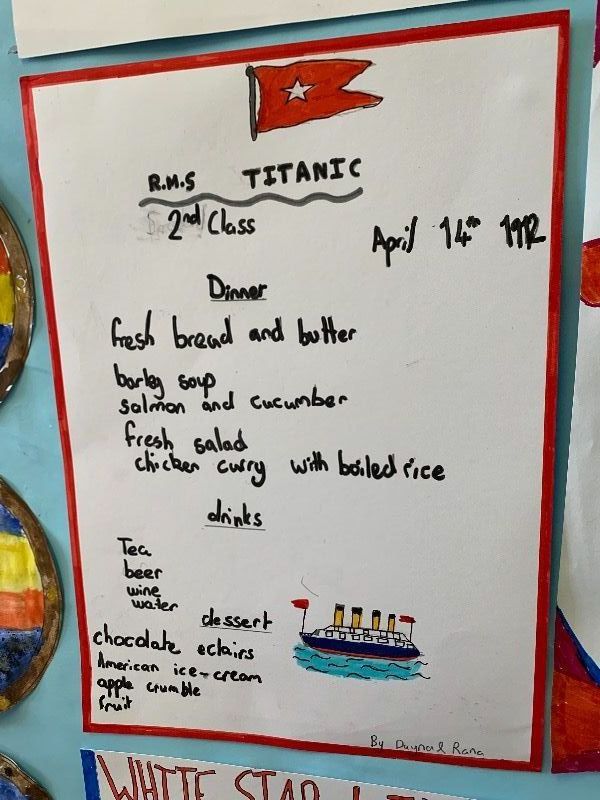 R.M.S TITANIC
2nd Class
April 14th 1912
Dinner
fresh bread and butter
barley soup
salmon and cucumber
fresh salad
chicken curry with boiled rice
drinks
Tea
beer
wine
water
dessert
chocolate eclairs
American ice-cream
apple crumble
fruit
By Rana
WHITE STAR